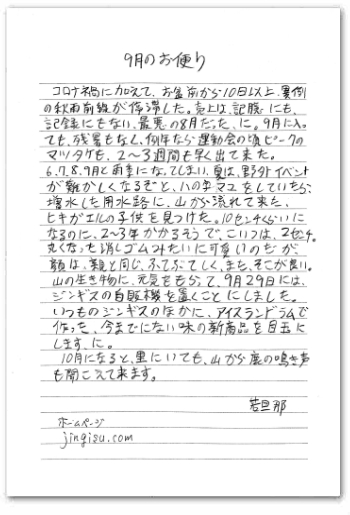 9月のお便り
コロナ禍に加えて、お盆前から10日以上、異例
の秋雨前線が停滞した。売上は、記憶にも、
記録にもない、最悪の8月だった、に。9月に入っ
ても、残暑もなく、例年なら運動会の頃ピークの
マツタケも、2〜3週間も早く出て来た。
6、7、8、9月と雨季になってしまい、夏は、野外イベント
が難かしくなるぞと、ハの字マユをしていたら、
増水した用水路に、山から流れて来た、
ヒキガエルの子供を見つけた。10センチくらいに
なるのに、2〜3年かかるそうで、こいつは、2センチ。
丸くなった消しゴムみたいに可愛いのだが、
顔は、親と同じ、ふてぶてしく、また、そこが良い。
山の生き物に、元気をもらって、9月29日には、
ジンギスの自販機を置くことにしました。
いつものジンギスのなかに、アイスランドラムで
作った、今までにない味の新商品を目玉に
します、に。
10月になると、里にいても、山から鹿の鳴き声
も聞こえて来ます。
若旦那
ホームページ
jingisu.com